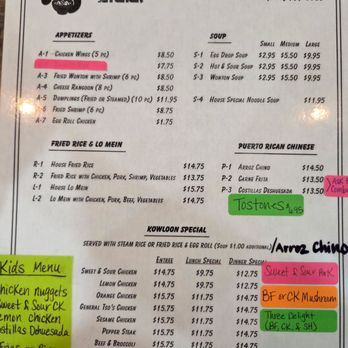 APPETIZERS
A-1 CHICKEN WINGS (5 PC) $8.50
$7.75
A-3 FRIED WONTON WITH SHRIMP (6 PC) $8.50
A-4 CHEESE RANGOON (8 PC) $8.50
A-5 DUMPLINGS (FRIED OR STEAMED) (10 PC) $11.95
A-6 FRIED SHRIMP (6 PC) $8.75
A-7 EGG ROLL CHICKEN $1.75
SOUP
SMALL MEDIUM LARGE
S-1 EGG DROP SOUP $2.95 $5.50 $9.95
S-2 HOT & SOUR SOUP $2.95 $5.50 $9.95
S-3 WONTON SOUP $2.95 $5.50 $9.95
S-4 HOUSE SPECIAL NOODLE SOUP $11.95
FRIED RICE & LO MEIN
R-1 HOUSE FRIED RICE $14.75
R-2 FRIED RICE WITH CHICKEN, PORK, SHRIMP, VEGETABLES $13.75
L-1 HOUSE LO MEIN $15.75
L-2 LO MEIN WITH CHICKEN, PORK, BEEF, VEGETABLES $14.75
PUERTO RICAN CHINESE
P-1 ARROZ CHINO $14.50
P-2 CARNE FRITA $13.50
P-3 COSTILLAS DESHUESADA $13.50
Tostones $4.95
KOWLOON SPECIAL
SERVED WITH STEAM RICE OR FRIED RICE & EGG ROLL (SOUP $1.00 ADDITIONAL) /Arroz Chino
ENTREE LUNCH SPECIAL DINNER SPECIAL
SWEET & SOUR CHICKEN $14.75 $9.75 $12.75
LEMON CHICKEN $14.75 $9.75 $12.75
ORANGE CHICKEN $15.75 $11.75 $14.75
GENERAL TSO'S CHICKEN $15.75 $11.75 $14.75
SESAME CHICKEN $15.75 $11.75 $14.75
PEPPER STEAK $15.75 $11.75 $14.75
BEEF & BROCCOLI $15.75 $11.75 $14.75
Sweet & Sour Pork
BF or CK Mushroom
Three Delight
(BF, CK, & SH)
Kids Menu
Chicken nuggets
Sweet & Sour CK
Lemon Chicken